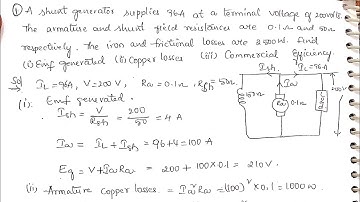 ① A shunt generator supplies 96A at a terminal voltage of 200volts.
The armature and shunt field resistances are 0.1Ω and 50Ω
respectively. The iron and frictional losses are 2500W. Find
(i) Emf generated (ii) Copper losses (iii) Commercial Efficiency.
Sol IL=96A, V=200V, Ra=0.1Ω, Rsh=50Ω Ish IL=96A
(i). Emf generated. Ia
Ish = V/Rsh = 200/50 = 4 A 50Ω Ra 0.1Ω 200V
Ia = IL + Ish = 96+4 = 100A
Eg = V+IaRa = 200+100×0.1 = 210V.
(ii) Armature Copper losses = Ia²Ra = (100)²×0.1 = 1000W.